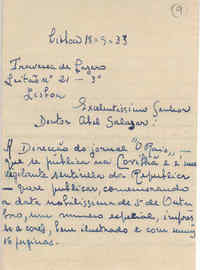 9
Lisboa 18-9-33
Travessa do Lazaro
Leitão nº 21 - 3º
Lisboa
Excelentíssimo Senhor
Doutor Abel Salazar:
A Direcção do jornal "O Raio" -
que se publica na Covilhã e é uma
vigilante sentinella da Republica
- quere publicar, comemorando
a data nobilissima de 5 de Outu-
bro, um numero especial, impres-
so a côres, bem ilustrado e com muitas
16 paginas.